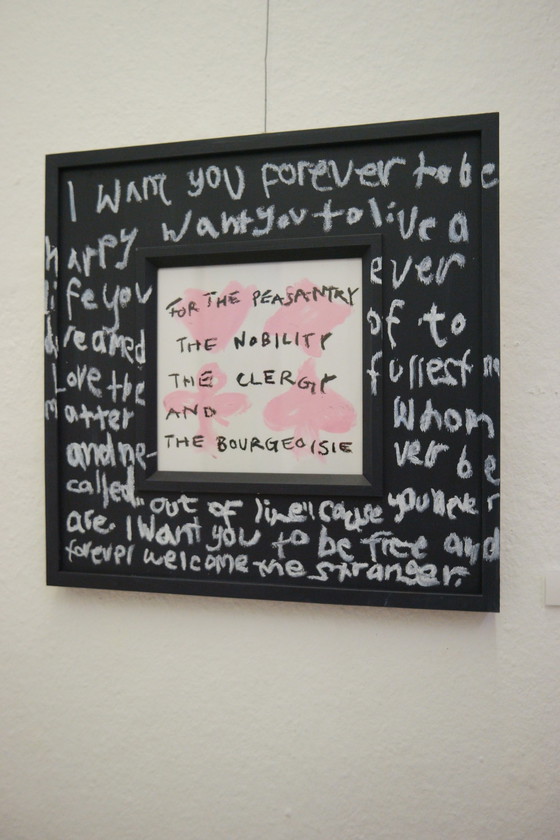 I want you forever to be
happy want you to live a
life you ever
dreamed of to
Love the fullest no
matter Whom
and ne- ver be
called "out of line" cause you never
are. I want you to be free and
forever welcome the stranger.
FOR THE PEASANTRY
THE NOBILITY
THE CLERGY
AND
THE BOURGEOISIE